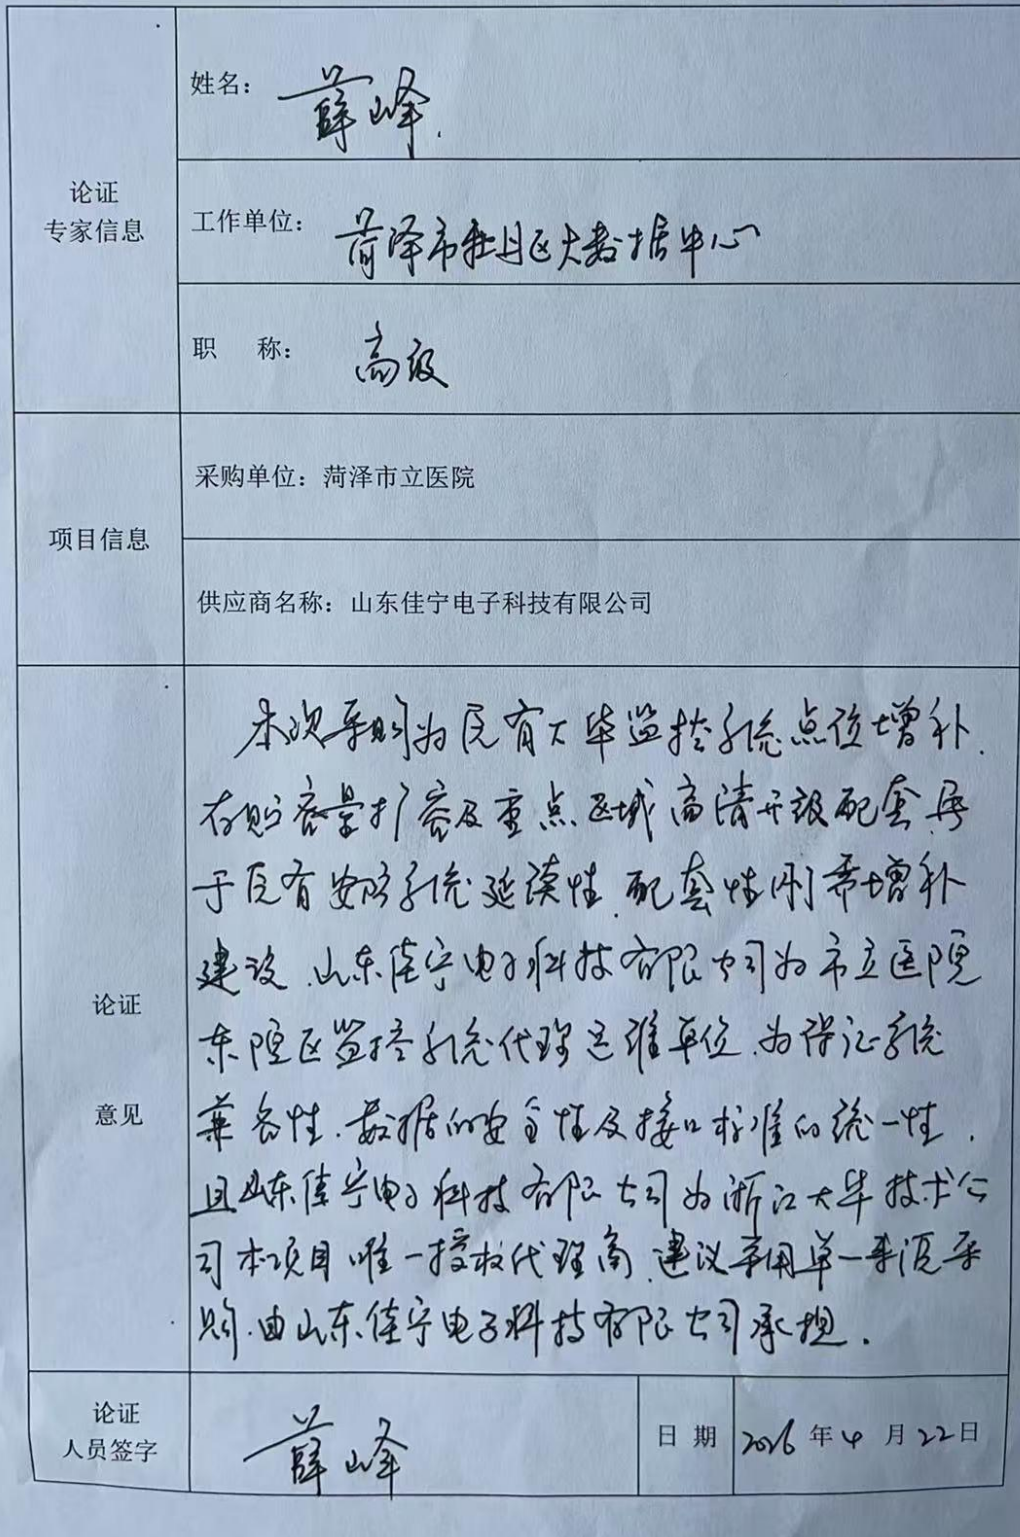 姓名：薛峰
论证
专家信息
工作单位：菏泽市牡丹区大数据中心
职 称：高级
采购单位：菏泽市立医院
项目信息
供应商名称：山东佳宁电子科技有限公司
本次采购为既有大华监控系统点位增补、
存贮容量扩容及重点区域高清升级配套，属
于既有安防系统延续性、配套性刚需增补
建设、山东佳宁电子科技有限公司为市立医院
东院区监控系统代理运维单位、为保证系统
兼容性、数据的安全性及接口标准的统一性，
且山东佳宁电子科技有限公司为浙江大华技术公
司本项目唯一授权代理商、建议采用单一来源采
购、由山东佳宁电子科技有限公司承担。
论证
意见
论证
人员签字
薛峰
日 期
2026年4月22日